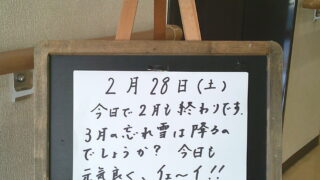 2月28日(土)
今日で2月も終わりです。
3月の忘れ雪は降るの
でしょうか? 今日も
元気良く、イェ〜イ!!